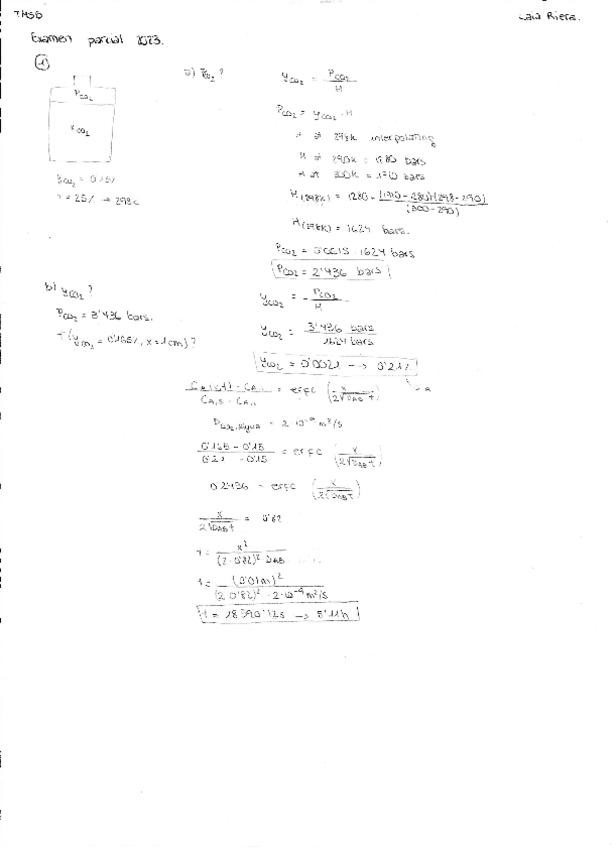 TMSD
Laia Riera.
Examen parcial 2023.
1
P_CO2
x_CO2
T = 25% → 298K
a) P_CO2?
y_CO2 = P_CO2 / H
P_CO2 = y_CO2 · H
H at 298K interpolating
H at 290K = 1280 bars
H at 300K = 1710 bars
H(298K) = 1624 bars.
P_CO2 = 0'0015 · 1624 bars
P_CO2 = 2'436 bars
b) y_CO2?
P_CO2 = 3'436 bars.
t (y_CO2 = 0'165%, x = 1cm)?
y_CO2 = P_CO2 / H
y_CO2 = 3'436 bars / 1624 bars
y_CO2 = 0'0021 → 0'21%
= erfc (x / 2√D_AB t)
0'165 - 0'15 / 0'21 - 0'15 = erfc (x / 2√D_AB t)
0'2436 = erfc (x / 2√D_AB t)
x / 2√D_AB t = 0'82
t = x² / (2·0'82)² D_AB
t = (0'01m)² / (2·0'82)² · 2·10⁻⁹ m²/s
t = 18590'12s → 5'11h